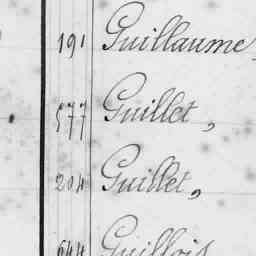 191 Guillaume,
577 Guillet,
204 Guillet,
644 Guillois